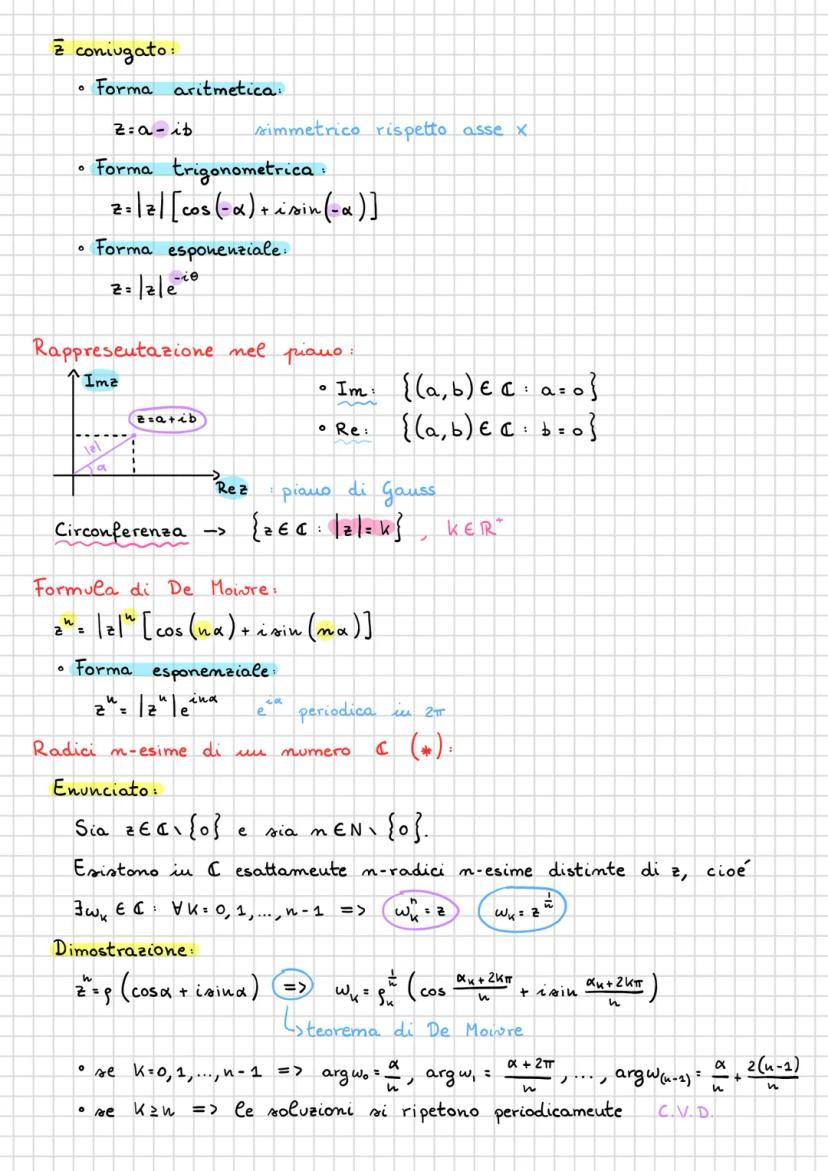 z̄ coniugato:
• Forma aritmetica:
z=a-ib simmetrico rispetto asse x
• Forma trigonometrica:
z=|z|[cos(-α)+isin(-α)]
• Forma esponenziale:
z=|z|e^{-iθ}
Rappresentazione nel piano:
Imz
z=a+ib
|z|
α
Rez : piano di Gauss
• Im: {(a,b)∈ℂ: a=0}
• Re: {(a,b)∈ℂ: b=0}
Circonferenza -> {z∈ℂ: |z|=k}, k∈ℝ⁺
Formula di De Moivre:
zⁿ=|z|ⁿ[cos(nα)+isin(nα)]
• Forma esponenziale:
zⁿ=|zⁿ|e^{inα} e^{iα} periodica in 2π
Radici n-esime di un numero ℂ (*):
Enunciato:
Sia z∈ℂ\{0} e sia n∈N\{0}.
Esistono in ℂ esattamente n-radici n-esime distinte di z, cioé
∃w_k∈ℂ: ∀k=0,1,...,n-1 => w_k^n=z w_k=z^{1/n}
Dimostrazione:
z^n=ρ(cosα+isinα) => w_k=ρ_k^{1/n}(cos (α_k+2kπ)/n + isin (α_k+2kπ)/n)
↳teorema di De Moivre
• se k=0,1,...,n-1 => argw₀=α/n, argw₁=(α+2π)/n,..., argw_{(n-1)}=α/n+2(n-1)/n
• se k≥n => le soluzioni si ripetono periodicamente C.V.D.